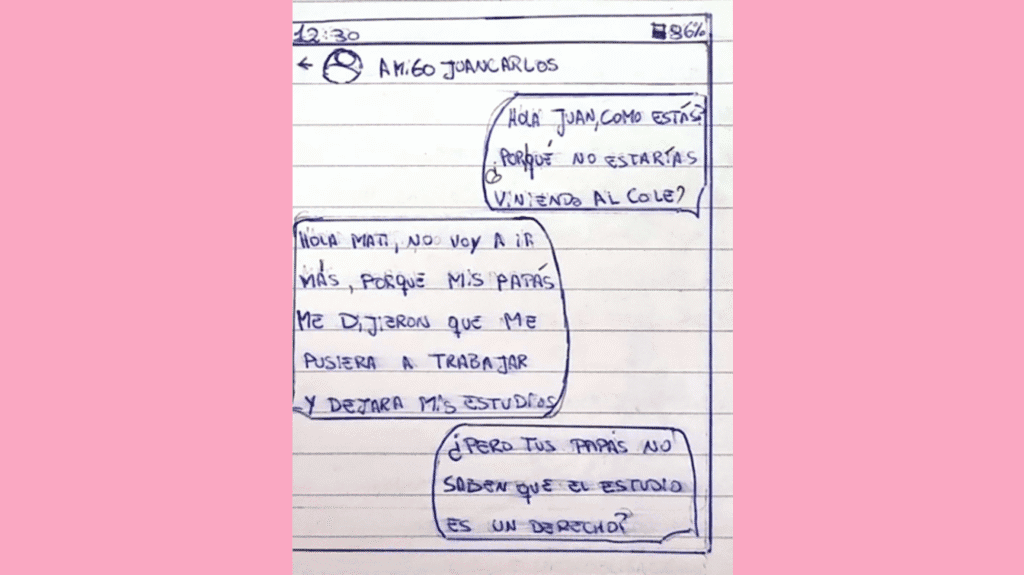 12:30 86%
← AMIGO JUANCARLOS
HOLA JUAN, COMO ESTÁS?
¿PORQUÉ NO ESTARÍAS
VINIENDO AL COLE?
HOLA MATI, NO VOY A IR
MÁS, PORQUE MIS PAPÁS
ME DIJIERON QUE ME
PUSIERA A TRABAJAR
Y DEJARA MIS ESTUDIOS
¿PERO TUS PAPÁS NO
SABEN QUE EL ESTUDIO
ES UN DERECHO?